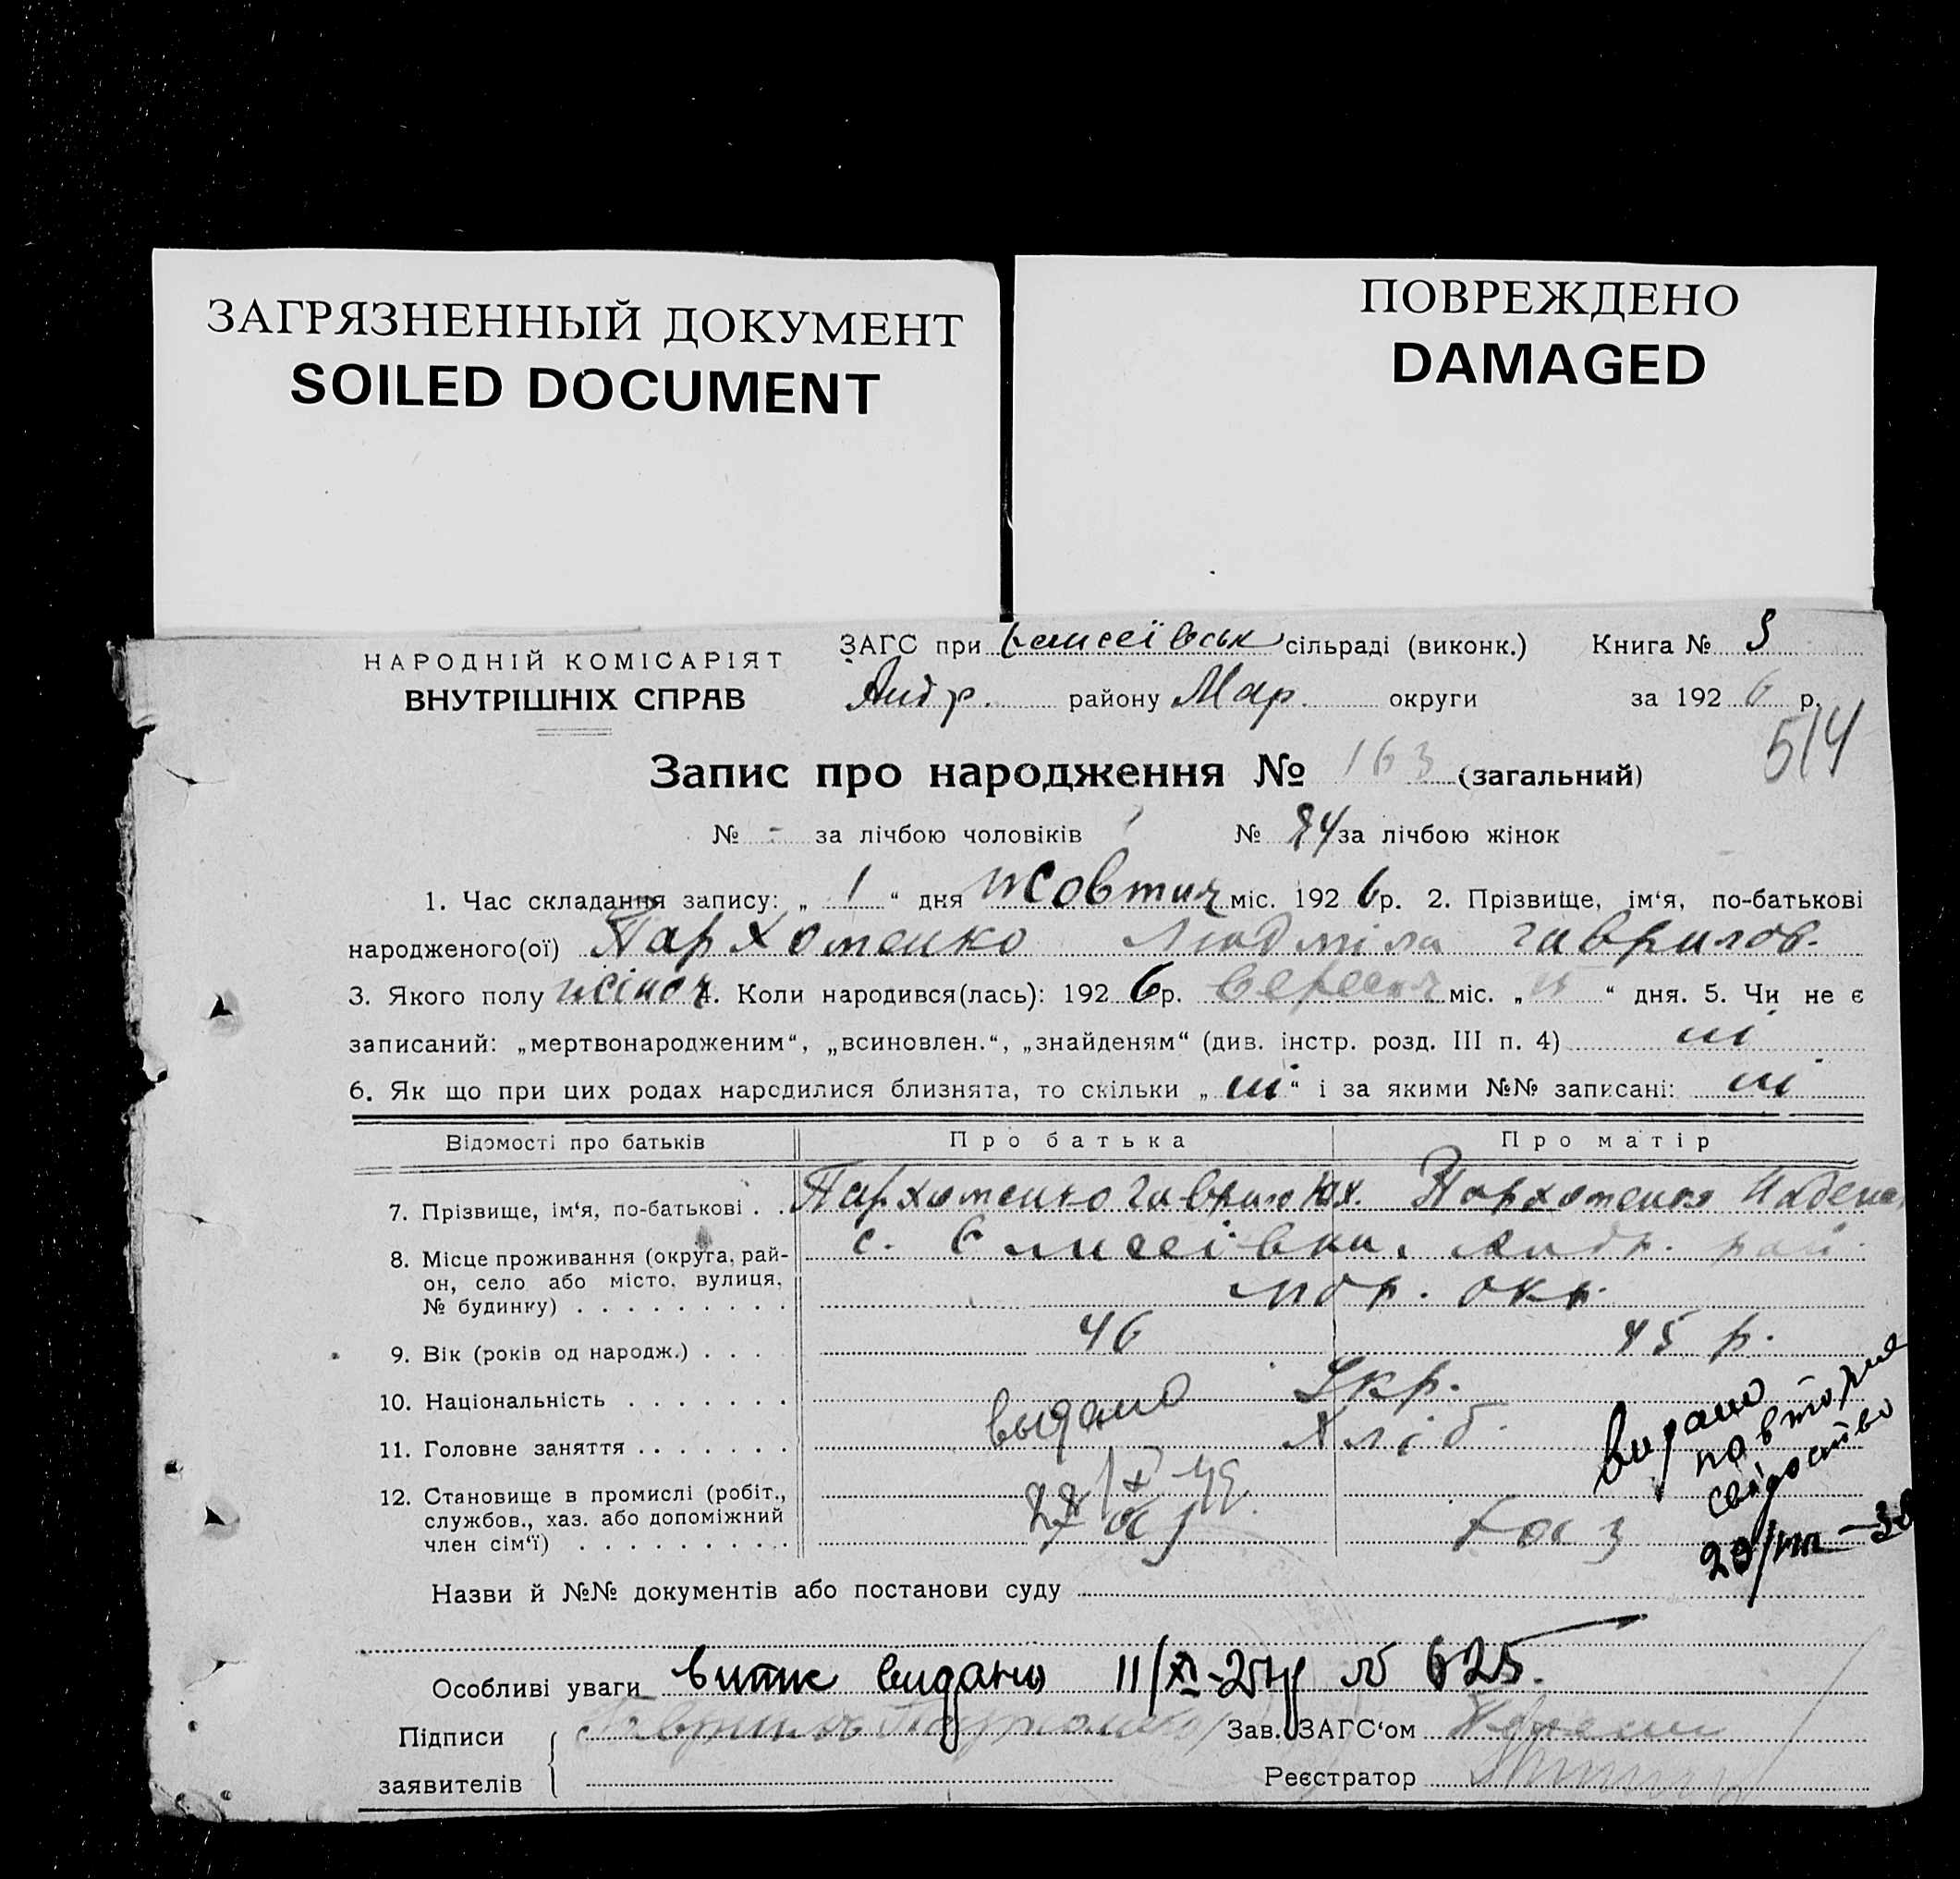 ЗАГРЯЗНЕННЫЙ ДОКУМЕНТ
SOILED DOCUMENT
ПОВРЕЖДЕНО
DAMAGED
НАРОДНІЙ КОМІСАРІЯТ
ВНУТРІШНІХ СПРАВ
ЗАГС при Єлисеївськ сільраді (виконк.) Книга №
Андр. району Мар. округи за 1926 р.
514
Запис про народження № 163 (загальний)
№ - за лічбою чоловіків № 84 за лічбою жінок
1. Час складання запису: „ 1 “ дня жовтня міс. 1926 р. 2. Прізвище, ім‘я, по-батькові
народженого(ої) Пархоменко Людміла Гаврилов.
3. Якого полу жіноч 4. Коли народився(лась): 1926 р. вересня міс. „ “ дня. 5. Чи не є
записаний: „мертвонародженим“, „всиновлен.“, „знайденям“ (див. інстр. розд. III п. 4) ні
6. Як що при цих родах народилися близнята, то скільки „ ні “ і за якими №№ записані: ні
Відомості про батьків Про батька Про матір
7. Прізвище, ім‘я, по-батькові . . Пархоменко Гаврило Юх. Пархоменко
8. Місце проживання (округа, рай-
он, село або місто, вулиця,
№ будинку) . . . . . . . . .
с. Єлисеївка, Андр. рай.
Мар. окр.
9. Вік (років од народж.) . . . 46 45 р.
10. Національність . . . . . . . Укр.
11. Головне заняття . . . . . . . Хліб.
12. Становище в промислі (робіт.,
службов., хаз. або допоміжний
член сім‘ї) . . . . . . . . .
хаз хаз
выдано
видано
повторне
свідоцтво
Назви й №№ документів або постанови суду
Особливі уваги витяг видано 11/XI-27р № 625.
Підписи
заявителів
Зав. ЗАГС‘ом
Реєстратор